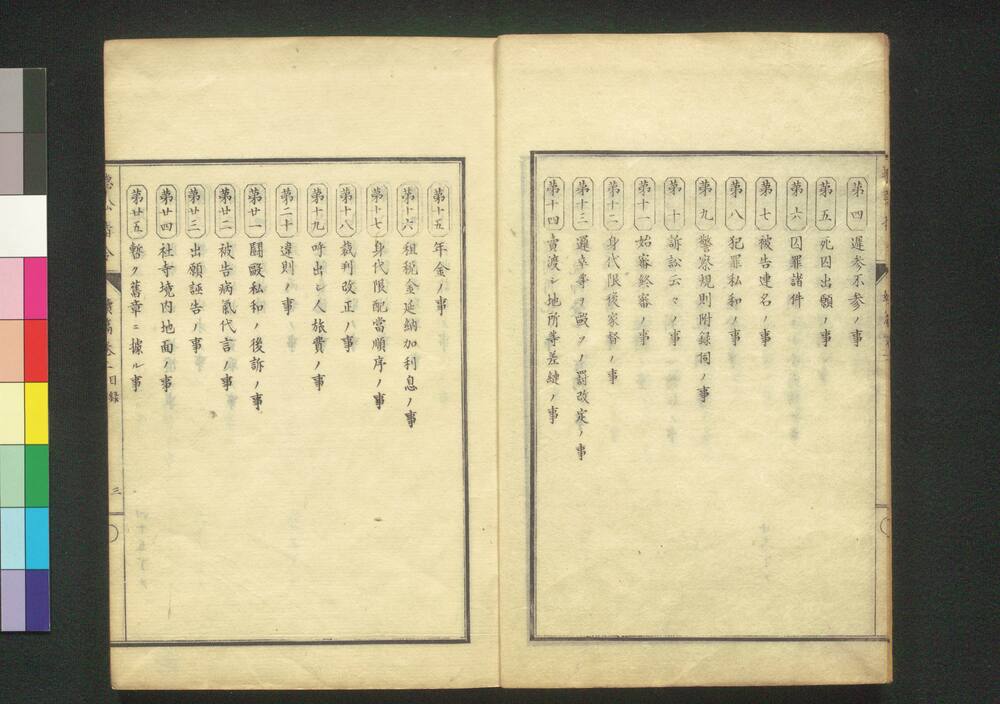 第四 遲参不参ノ事
第五 死囚出願ノ事
第六 囚罪諸件
第七 被告連名ノ事
第八 犯罪私和ノ事
第九 警察規則附録伺ノ事
第十 訴訟云々ノ事
第十一 始審終審ノ事
第十二 身代限後家督ノ事
第十三 邏卒等ヲ毆ツノ罰改定ノ事
第十四 賣渡シ地所等差縺ノ事
第十五 年金ノ事
第十六 租税金延納加利息ノ事
第十七 身代限配當順序ノ事
第十八 裁判改正ノ事
第十九 呼出シ人旅費ノ事
第二十 違則ノ事
第廿一 鬪毆私和ノ後訴ノ事
第廿二 被告病氣代言ノ事
第廿三 出願誣告ノ事
第廿四 社寺境内地面ノ事
第廿五 暫ク舊章ニ據ル事
目録
三